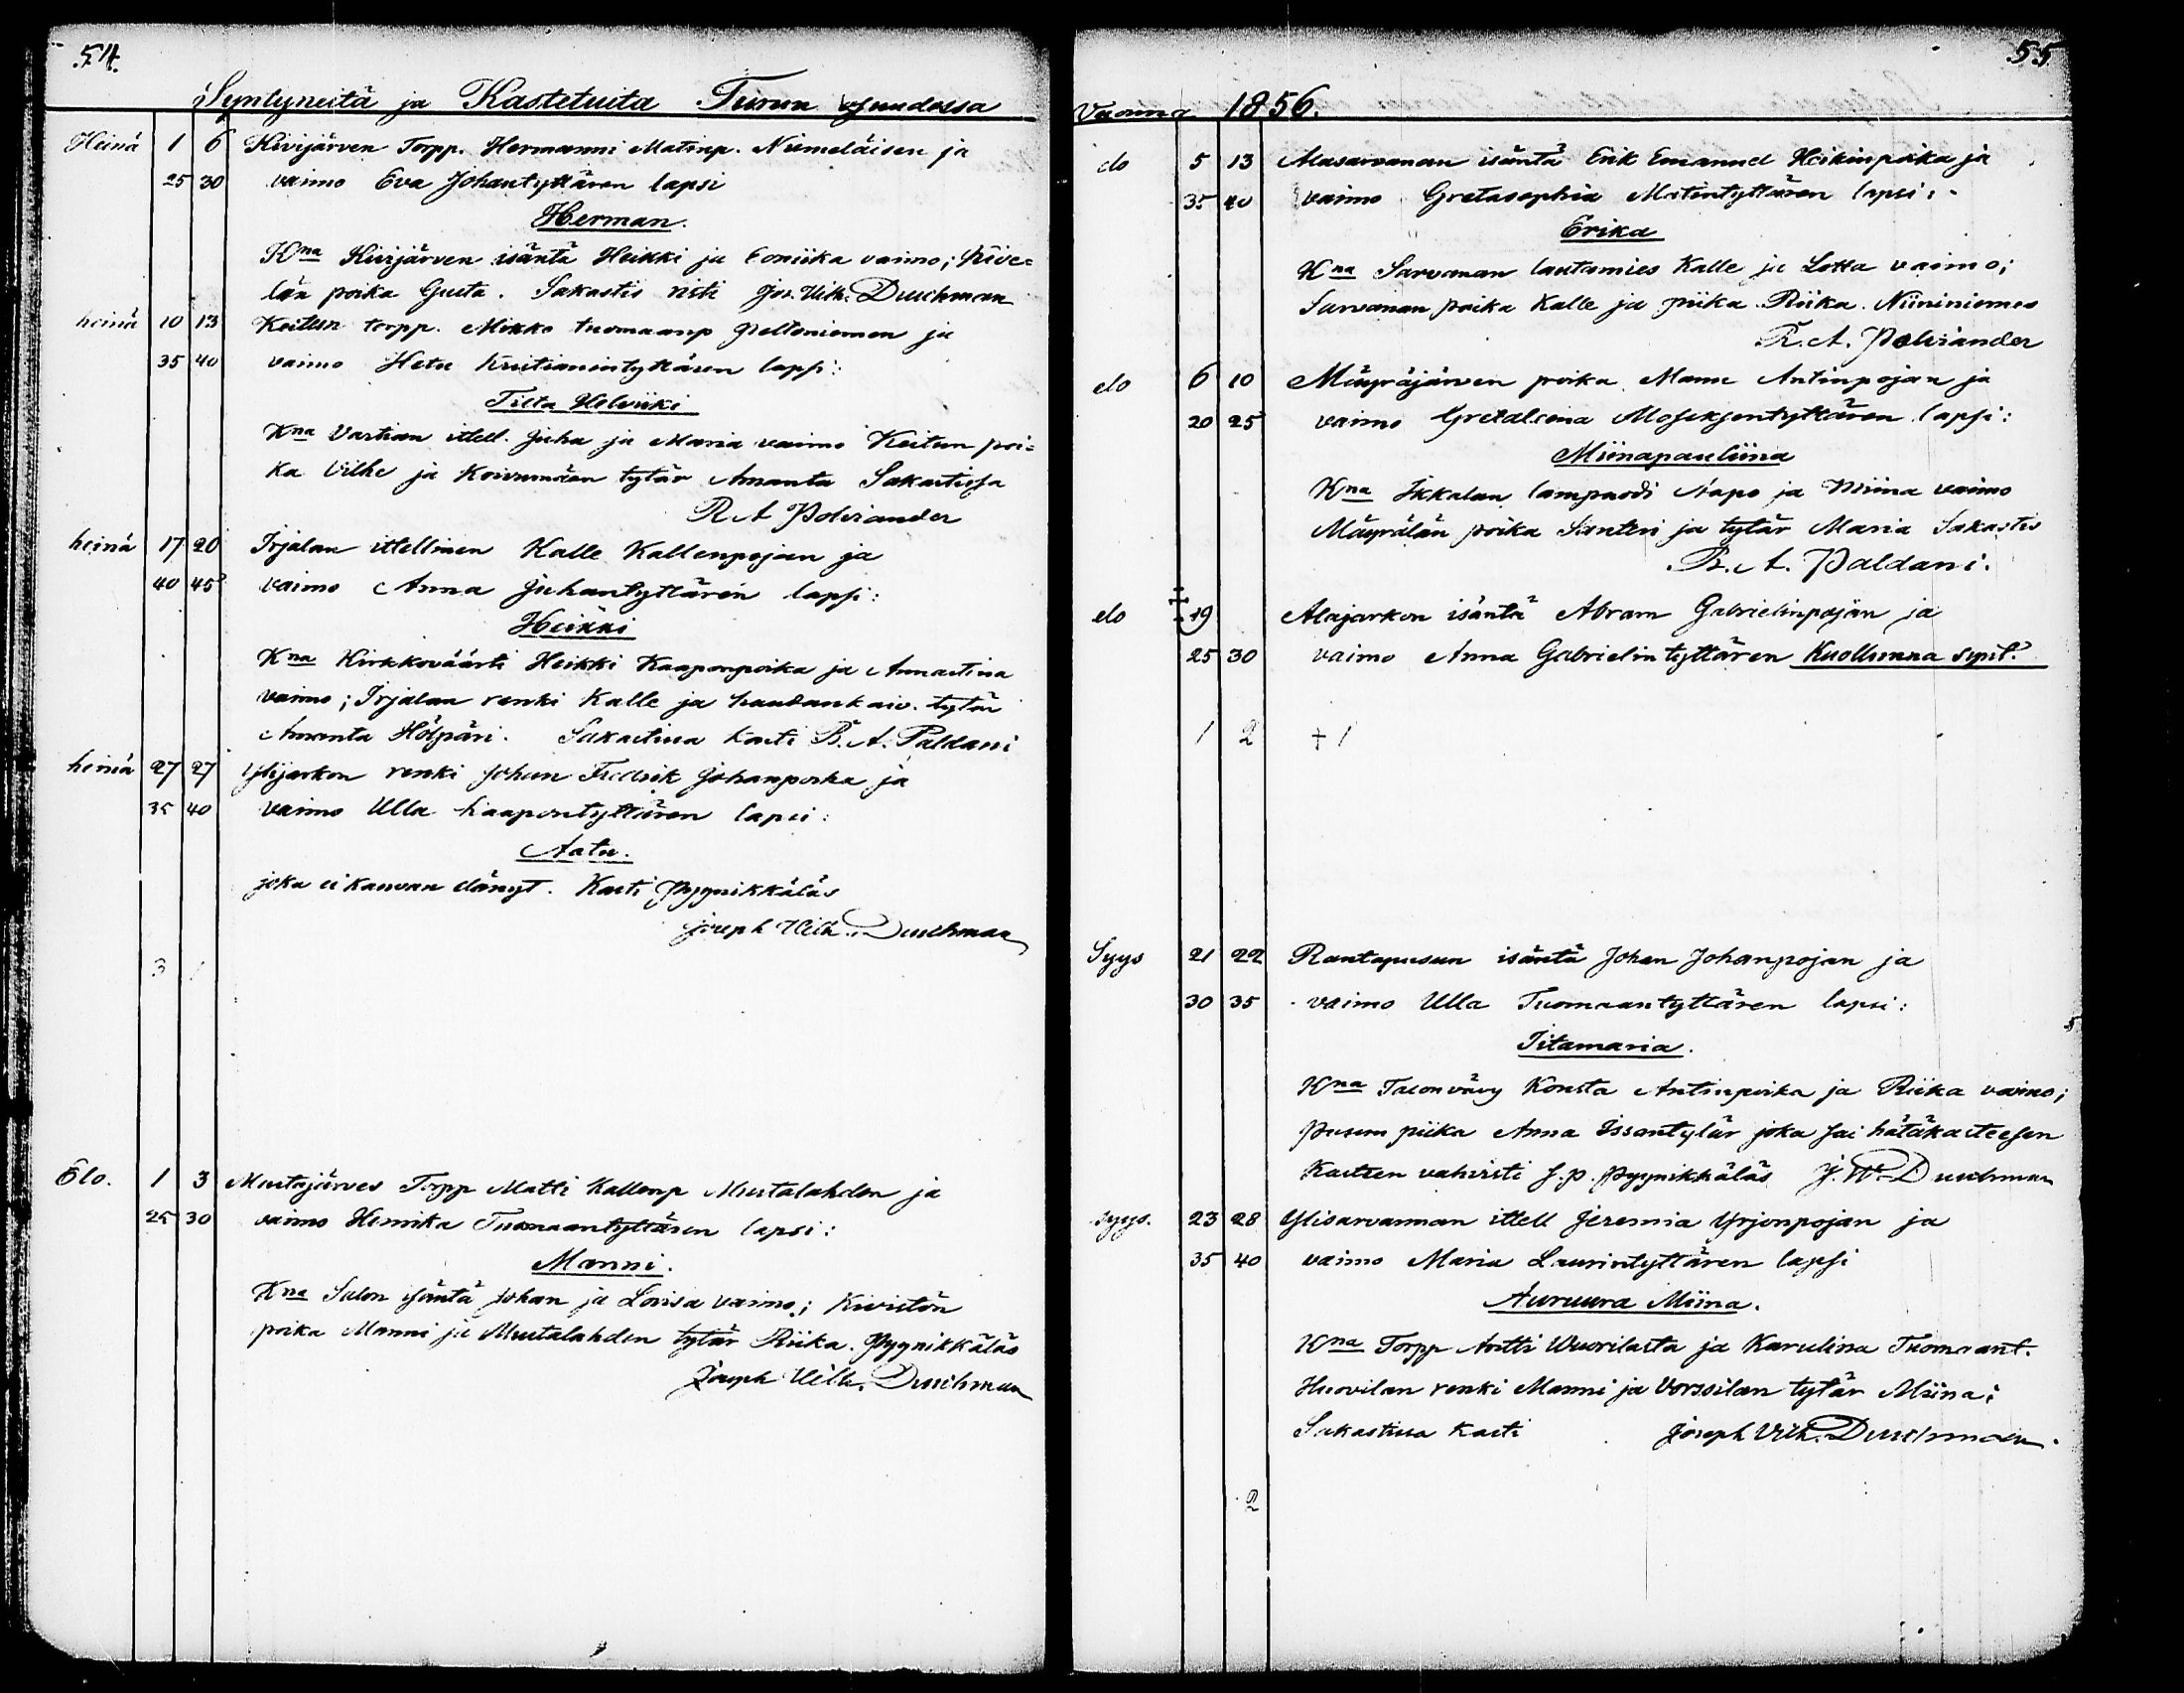 54.
Syntyneitä ja Kastetuita Turun
Heinä 1 6 Kivijärven Torpp. Hermanni Matinp. Niemeläisen ja
25 30 vaimo Eva Johantyttären lapsi
Herman.
Kna Kivijärven isäntä Heikki ja vaimo; Kive=
län poika Gusta. Sakastis risti Jos. Vilh. Duschman
heinä 10 13 Keitun torpp. Mikko tuomaanp Peltoniemen ja
35 40 vaimo Hetu Kristianintyttären lapsi:
Tilta Helviiki
Kna Vartian ittell. Juha ja Maria vaimo Keitun poi=
ka Vilhe ja Koivumäen tytär Amanta Sakastissa
R A Polviander
heinä 17 20 Irjalan ittellinen Kalle Kallenpojan ja
40 45 vaimo Anna Juhantyttären lapsi:
Heikki
Kna Kirkkoväärti Heikki Kaaponpoika ja Annastina
vaimo; Irjalan renki Kalle ja haudankaiv. tytär
Amanta Hölpäri. Sakastissa kasti B. A. Paldani
heinä 27 27 Ylijarkon renki Johan Fredrik Johanpoika ja
35 40 vaimo Ulla Kaapontyttären lapsi:
Aatu.
joka ei kauvan elänyt. Kasti Pyynikkäläs
Joseph Vilh. Duschman
3 1
Elo. 1 3 Mustajärves Torpp Matti Kallenp Mustalahden ja
25 30 vaimo Henrika Tuomaantyttären lapsi:
Manni.
Kna Salon isäntä Johan ja Lovisa vaimo; Kivistön
poika Manni ja Mustalahden tytär Riika. Pyynikkäläs
Joseph Vilh. Duschman
55
Vuonna 1856.
elo 5 13 Alasarvanan isäntä Erik Emanuel Heikinpoika ja
35 40 vaimo Gretasophia Matintyttären lapsi:
Erika
Kna Sarvanan lautamies Kalle ja Lotta vaimo;
Sarvanan poika Kalle ja piika Riika. Niininiemes
R. A. Polviander
elo 6 10 Mäyräjärven poika Manu Antinpojan ja
20 25 vaimo Gretaleena Mosesentyttären lapsi:
Miinapauliina
Kna Ikkalan lampuodi Aapo ja Miina vaimo
Mäyrälän poika Santeri ja tytär Maria Sakastis
B. A. Paldani.
elo 19 Alajarkon isäntä Abram Gabrielinpojan ja
25 30 vaimo Anna Gabrielintyttären Kuolluna synt.
1 2 † 1
Syys 21 22 Rantapusun isäntä Johan Johanpojan ja
30 35 vaimo Ulla Tuomaantyttären lapsi:
Iitamaria.
Kna Talonvävy Konsta Antinpoika ja Riika vaimo;
Pusun piika Anna Issantytär joka sai hätäkasteesen
Kasteen vahvisti s.p. Pyynikkäläs J. W. Duschman
syys. 23 28 Ylisarvannan ittell Jeremia Yrjönpojan ja
35 40 vaimo Maria Laurintyttären lapsi
Auruura Miina.
Kna Torpp Antti Wuorilasta ja Karulina Tuomaant.
Huovilan renki Manni ja Vorssilan tytär Miina;
Sakastissa kasti Joseph Vilh. Duschman.
2